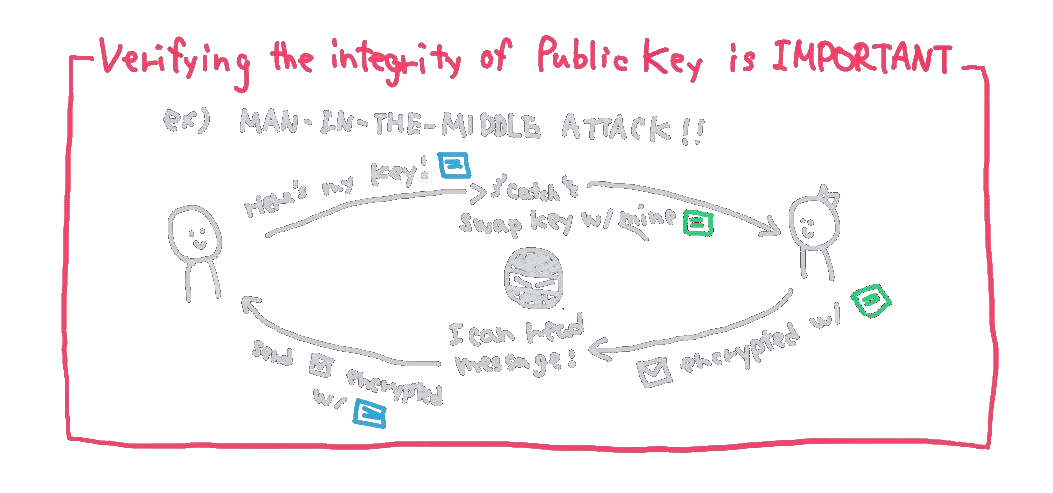 Verifying the integrity of Public Key is IMPORTANT
ex) MAN-IN-THE-MIDDLE ATTACK!!
Here's my key!
catch
swap key w/ mine
I can read
message!
encrypted w/
send encrypted
w/